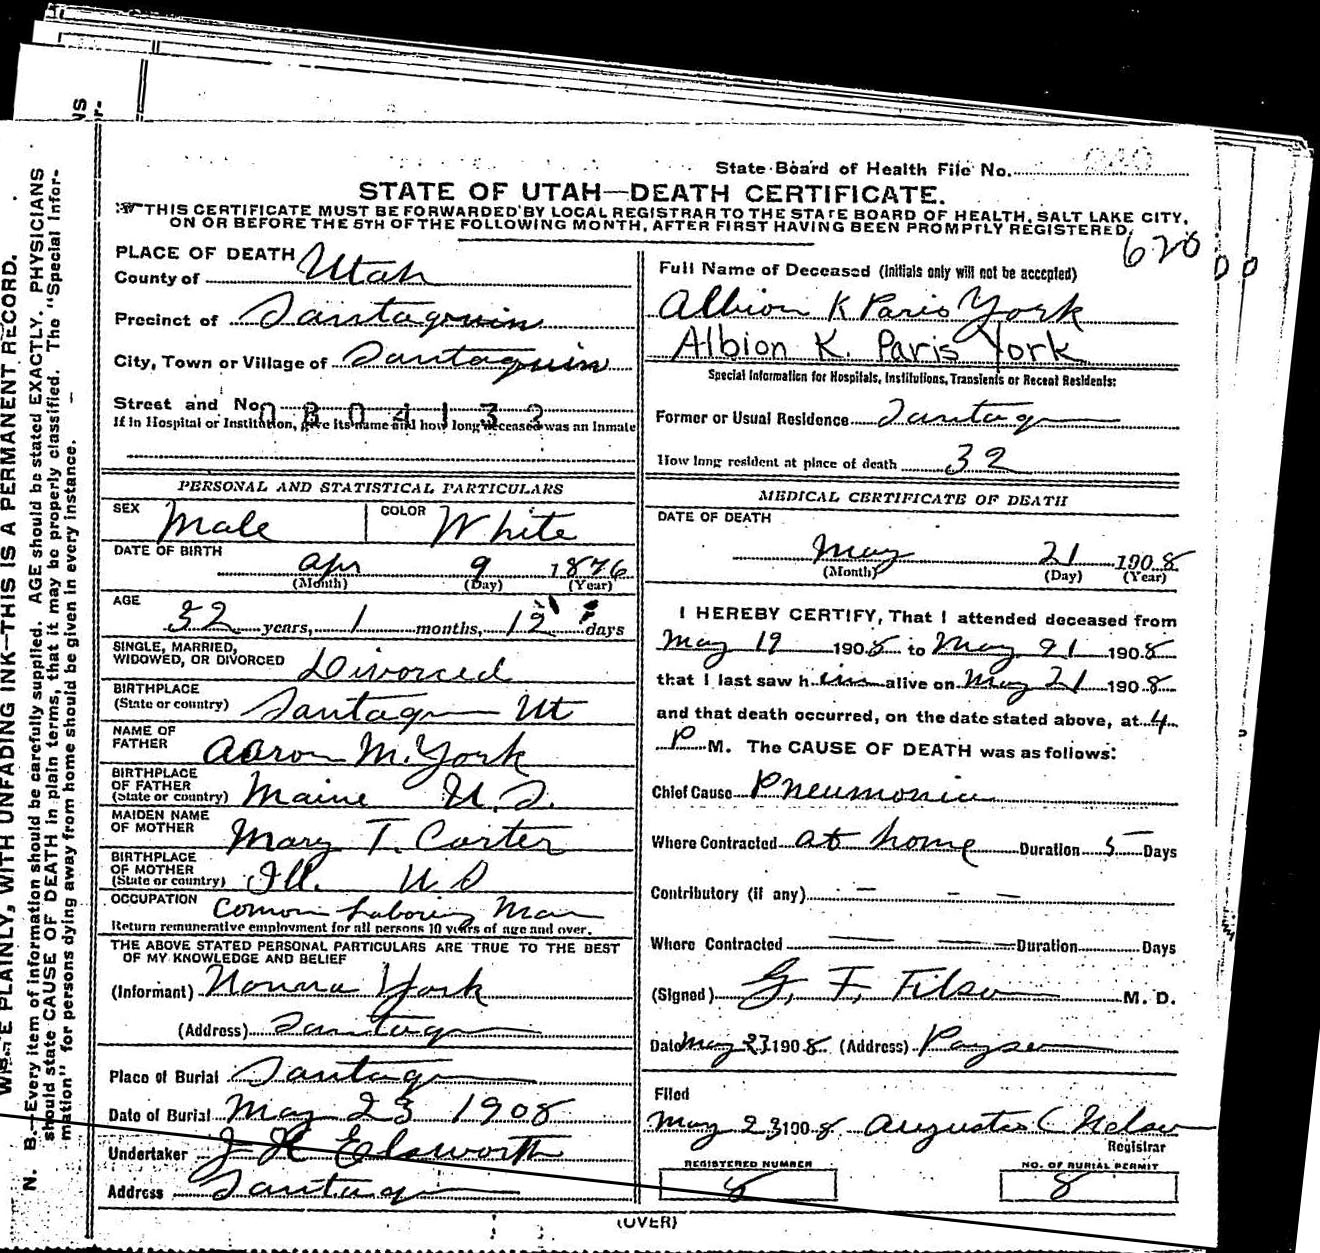 WRITE PLAINLY, WITH UNFADING INK—THIS IS A PERMANENT RECORD.
N. B.—Every item of information should be carefully supplied. AGE should be stated EXACTLY. PHYSICIANS
should state CAUSE OF DEATH in plain terms, that it may be properly classified. The "Special Infor-
mation" for persons dying away from home should be given in every instance.
State Board of Health File No.
STATE OF UTAH—DEATH CERTIFICATE.
THIS CERTIFICATE MUST BE FORWARDED BY LOCAL REGISTRAR TO THE STATE BOARD OF HEALTH, SALT LAKE CITY,
ON OR BEFORE THE 5TH OF THE FOLLOWING MONTH, AFTER FIRST HAVING BEEN PROMPTLY REGISTERED.
620
PLACE OF DEATH
County of Utah
Precinct of Santaquin
City, Town or Village of Santaquin
Street and No. 0804132
If in Hospital or Institution, give its name and how long deceased was an Inmate
PERSONAL AND STATISTICAL PARTICULARS
SEX Male COLOR White
DATE OF BIRTH
Apr 9 1876
(Month) (Day) (Year)
AGE
32 years, 1 months, 12 days
SINGLE, MARRIED,
WIDOWED, OR DIVORCED Divorced
BIRTHPLACE
(State or country) Santaq Ut
NAME OF
FATHER Aaron M. York
BIRTHPLACE
OF FATHER
(State or country) Maine U.S.
MAIDEN NAME
OF MOTHER Mary T. Carter
BIRTHPLACE
OF MOTHER
(State or country) Ill. U S
OCCUPATION Comon Laboring Man
Return remunerative employment for all persons 10 years of age and over.
THE ABOVE STATED PERSONAL PARTICULARS ARE TRUE TO THE BEST
OF MY KNOWLEDGE AND BELIEF
(Informant) York
(Address) Santaq
Place of Burial Santaq
Date of Burial May 23 1908
Undertaker J H Elsworth
Address Santaq
Full Name of Deceased (Initials only will not be accepted)
Albion K Paris York
Albion K. Paris York
Special Information for Hospitals, Institutions, Transients or Recent Residents:
Former or Usual Residence Santaq
How long resident at place of death 32
MEDICAL CERTIFICATE OF DEATH
DATE OF DEATH
May 21 1908
(Month) (Day) (Year)
I HEREBY CERTIFY, That I attended deceased from
May 19 1908 to May 21 1908
that I last saw him alive on May 21 1908
and that death occurred, on the date stated above, at 4
P M. The CAUSE OF DEATH was as follows:
Chief Cause Pneumonia
Where Contracted at home Duration 5 Days
Contributory (if any)
Where Contracted Duration Days
(Signed) G. F. M. D.
Date May 23 1908 (Address) Payson
Filed
May 23 1908 Augustas C Nelson
Registrar
REGISTERED NUMBER
8
NO. OF BURIAL PERMIT
8
(OVER)